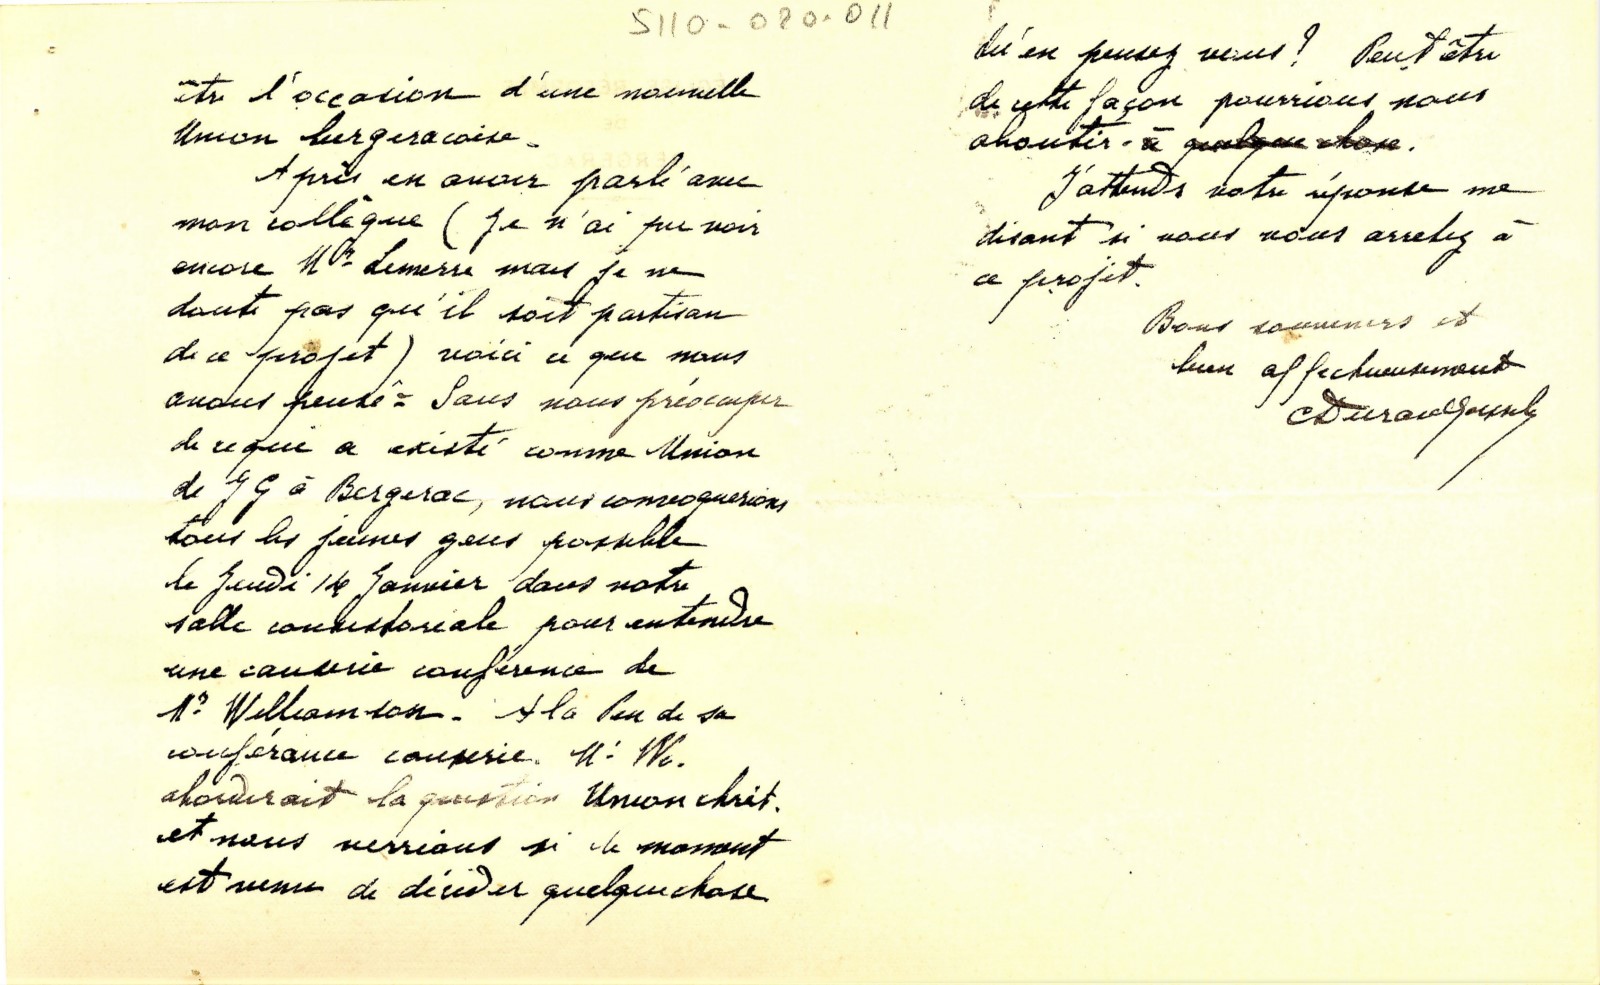 5110-020-011
être l'occasion d'une nouvelle
Union bergeracoise.
Après en avoir parlé avec
mon collègue (Je n'ai pu voir
encore Mr Lemerre mais je ne
doute pas qu'il soit partisan
de ce projet) voici ce que nous
avons pensé = Sans nous préoccuper
de ce qui a existé comme Union
de JG à Bergerac, nous convoquerions
tous les jeunes gens possible
le Jeudi 14 Janvier dans notre
salle consistoriale pour entendre
une causerie conférence de
Mr Williamson. A la fin de sa
conférance causerie. Mr W.
aborderait la question Union chrét.
et nous verrions si le moment
est venu de décider quelque chose
Qu'en pensez vous? Peut être
de cette façon pourrions nous
aboutir à quelque chose.
J'attends votre réponse me
disant si vous vous arretez à
ce projet.
Bons souvenirs et
bien affectueusement